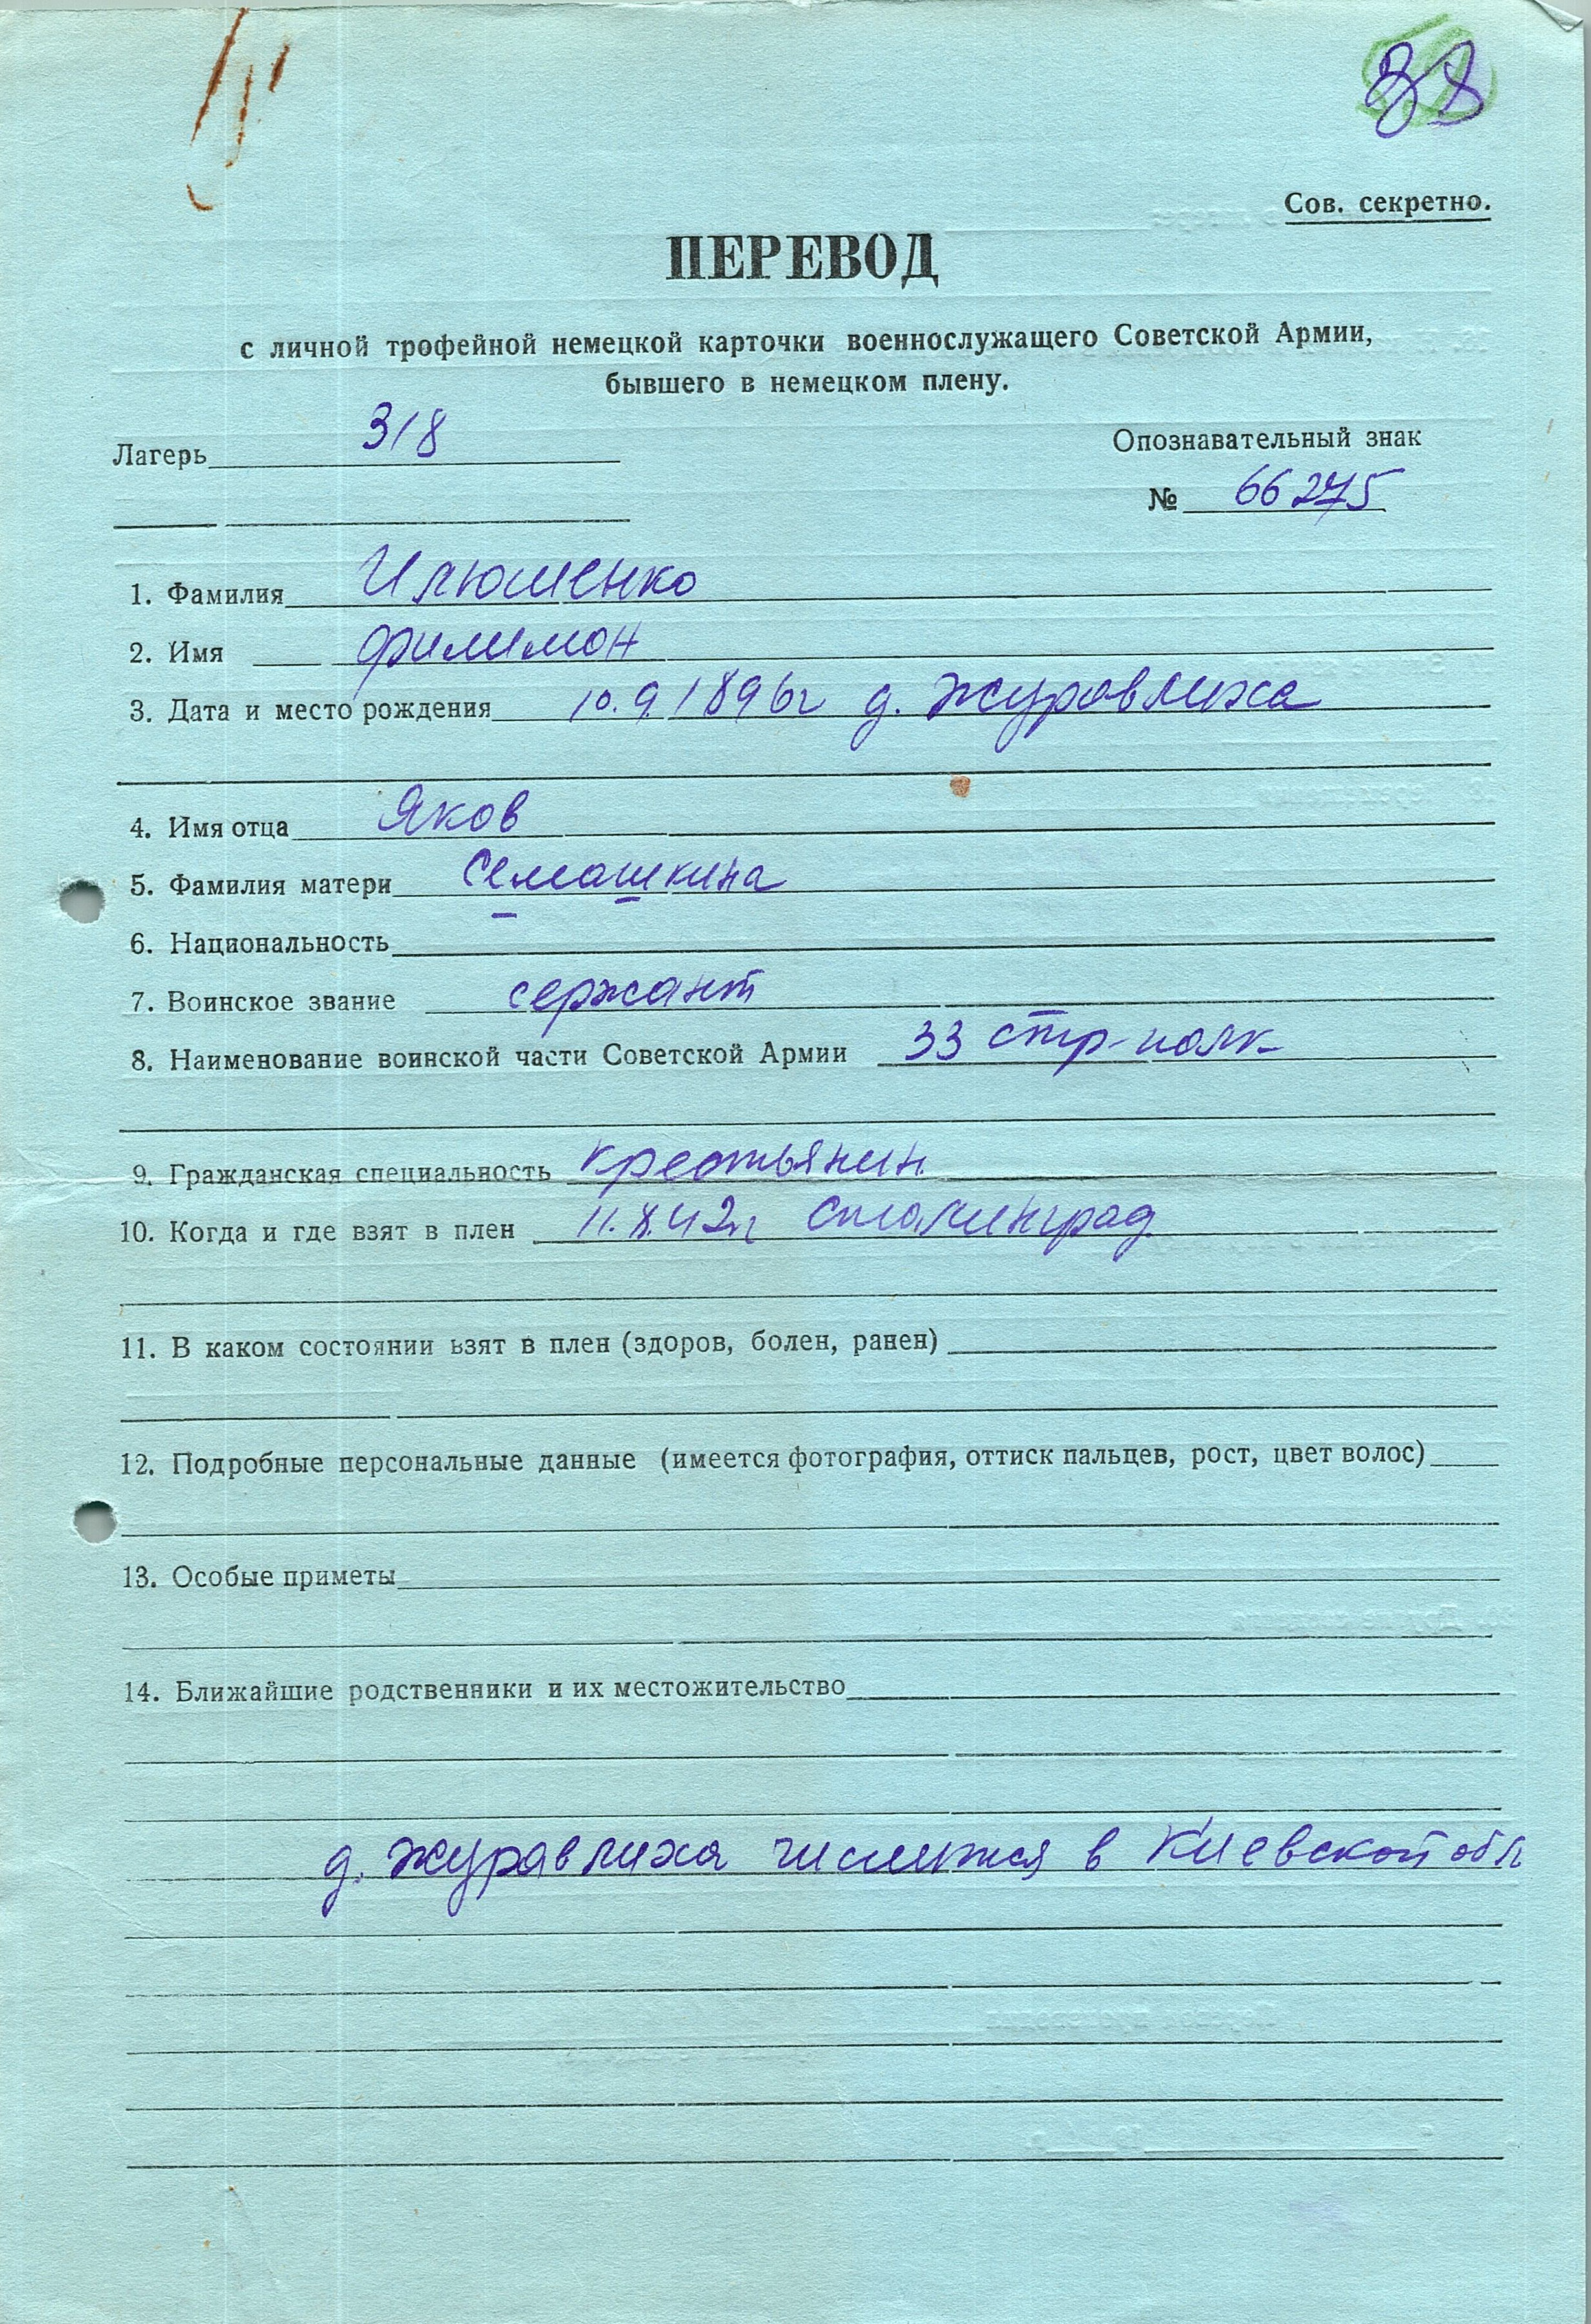 38
Сов. секретно.
ПЕРЕВОД
с личной трофейной немецкой карточки военнослужащего Советской Армии,
бывшего в немецком плену.
Лагерь 318
Опознавательный знак
№ 66275
1. Фамилия Илюшенко
2. Имя Филимон
3. Дата и место рождения 10.9.1896г д. Журавлиха
4. Имя отца Яков
5. Фамилия матери Семашкина
6. Национальность
7. Воинское звание сержант
8. Наименование воинской части Советской Армии 33 стр-полк
9. Гражданская специальность крестьянин
10. Когда и где взят в плен 11.8.42г Сталинград
11. В каком состоянии взят в плен (здоров, болен, ранен)
12. Подробные персональные данные (имеется фотография, оттиск пальцев, рост, цвет волос)
13. Особые приметы
14. Ближайшие родственники и их местожительство
д. Журавлиха числится в Киевской обл